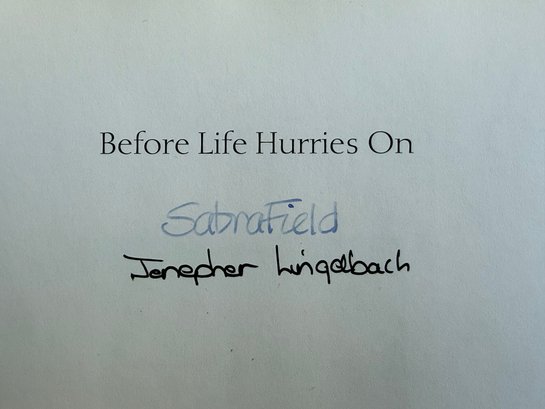 Before Life Hurries On
Sabra Field
Jenepher Lingelbach